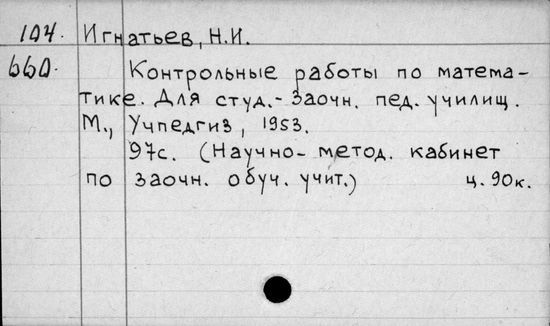 104. Игнатьев, Н.И.
660. Контрольные работы по матема-
тике. Для студ.-заочн. пед. училищ.
М., Учпедгиз, 1953.
97с. (Научно-метод. кабинет
по заочн. обуч. учит.) ц. 90к.